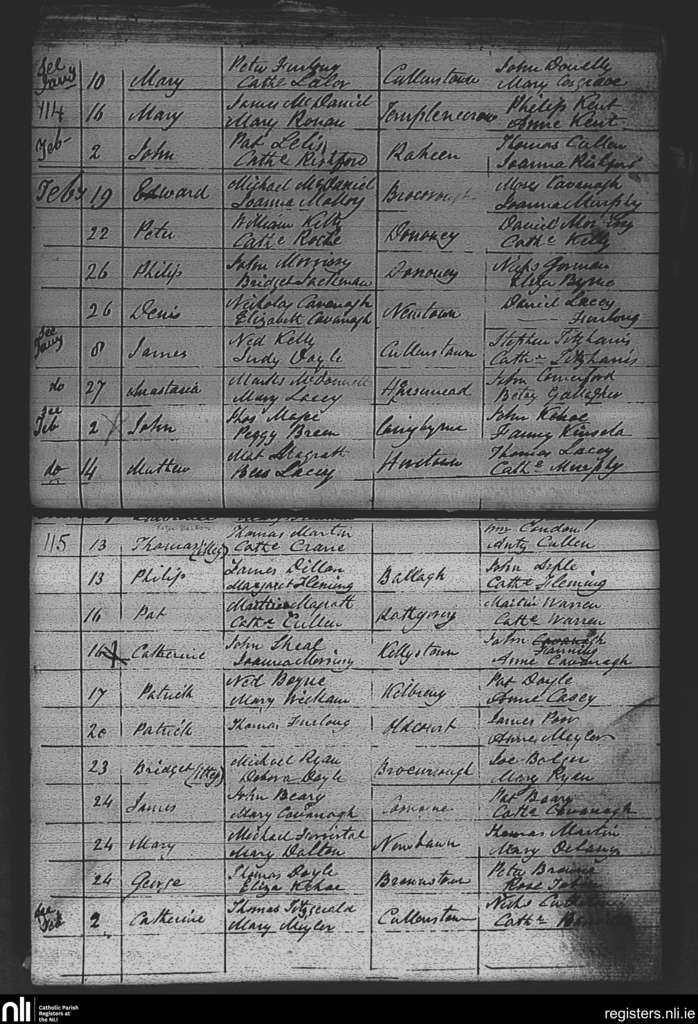 See
Jany 10 Mary Peter Furlong Cullenstown John Donelly
Cathe Lalor Mary Cosgrave
114 16 Mary James McDaniel Templenecrow Philip Kent
Mary Ronan Anne Kent
Feb 2 John Pat Raheen Thomas Cullen
Cathe Rishford Joanna Rishford
Feby 19 Edward Michael McDaniel Moses Kavanagh
Joanna Molloy Joanna Murphy
22 Peter William Kelly Donooney Daniel
Cathe Roche Cathe Kelly
26 Philip John Morrissy Donooney Nichs Gorman
Bridget Skelleman Eliza Byrne
26 Denis Nicholas Cavanagh Newtown Daniel Lacey
Elizabeth Cavanagh Furlong
See
Jany 8 James Ned Kelly Cullenstown Stephen Fitzharris
Judy Doyle Cathe Fitzharris
do 27 Anastasia McDonnell Horsemead John Comerford
Mary Lacey Betsy Gallagher
See
Feb 2 X John Thos Craigbyrne John Kehoe
Peggy Breen Fanny Kinsela
do 14 Mathew Mat Thomas Lacey
Bess Lacey Cathe Murphy
115 13 Thomas (illeg) Thomas Martin Wm Condon
Cathe Crane Anty Cullen
13 Philip James Dillon Ballagh John
Margaret Fleming Cathe Fleming
16 Pat Magrath Rathgorey Martin Warren
Cathe Cullen Cathe Warren
16 X Catherine John Sheal Kellystown John Cavanagh
Fanning
Joanna Morrissy Anne Cavanagh
17 Patrick Ned Pat Doyle
Mary Wickham Anne Casey
20 Patrick Thomas Furlong Oldcourt James Poor
Anne Meyler
23 Bridget (illeg) Michael Ryan Joe Bolger
Debora Doyle Mary Ryan
24 James John Beary Pat Beary
Mary Cavanagh Cathe Cavanagh
24 Mary Michael Forristal Newbawn Thomas Martin
Mary Dalton Mary Delany
24 George Thomas Doyle Brownstown Peter Browne
Eliza Kehoe Rose
See
Feb 2 Catherine Thomas Fitzgerald Cullenstown Nichs
Mary Meyler Cathe
nli Catholic Parish
Registers at
the NLI
registers.nli.ie